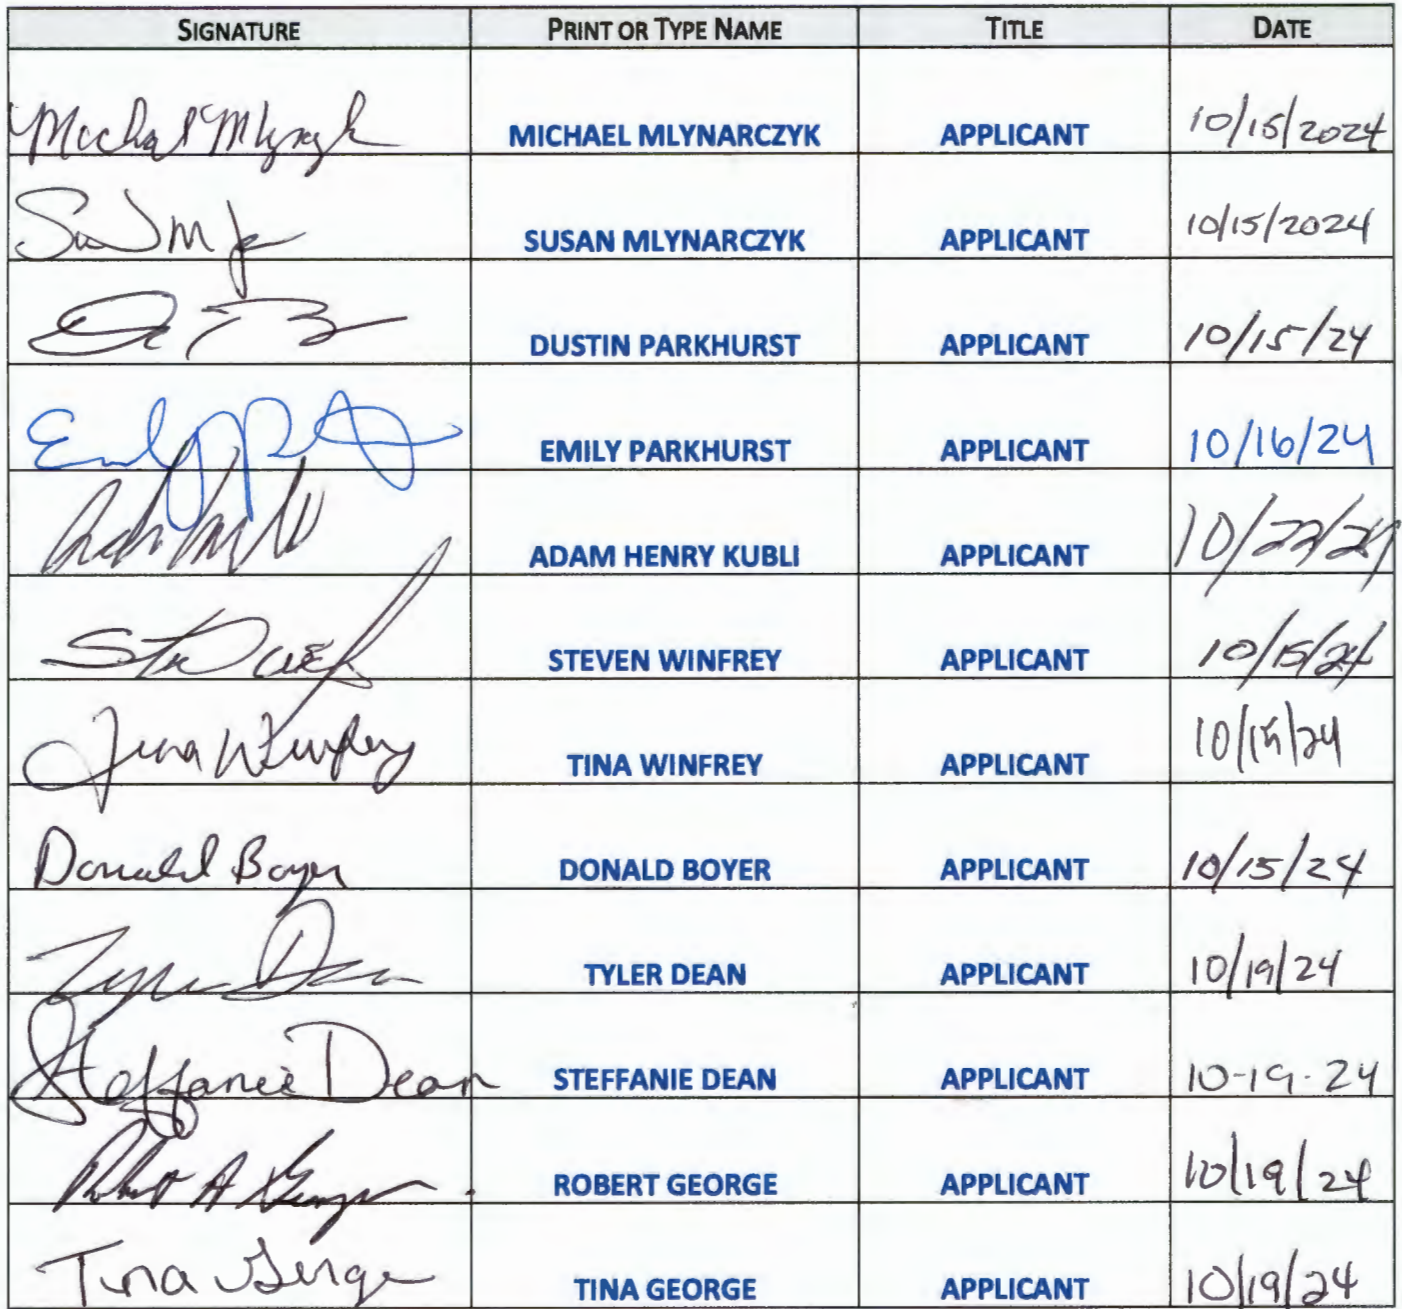 SIGNATURE PRINT OR TYPE NAME TITLE DATE
MICHAEL MLYNARCZYK APPLICANT 10/15/2024
SUSAN MLYNARCZYK APPLICANT 10/15/2024
DUSTIN PARKHURST APPLICANT 10/15/24
EMILY PARKHURST APPLICANT 10/16/24
ADAM HENRY KUBLI APPLICANT 10/22/24
STEVEN WINFREY APPLICANT 10/15/24
Tina Winfrey TINA WINFREY APPLICANT
Donald Boyer DONALD BOYER APPLICANT 10/15/24
Tyler Dean TYLER DEAN APPLICANT 10/19/24
Steffanie Dean STEFFANIE DEAN APPLICANT 10-19-24
Robert A George ROBERT GEORGE APPLICANT 10/19/24
Tina George TINA GEORGE APPLICANT 10/19/24